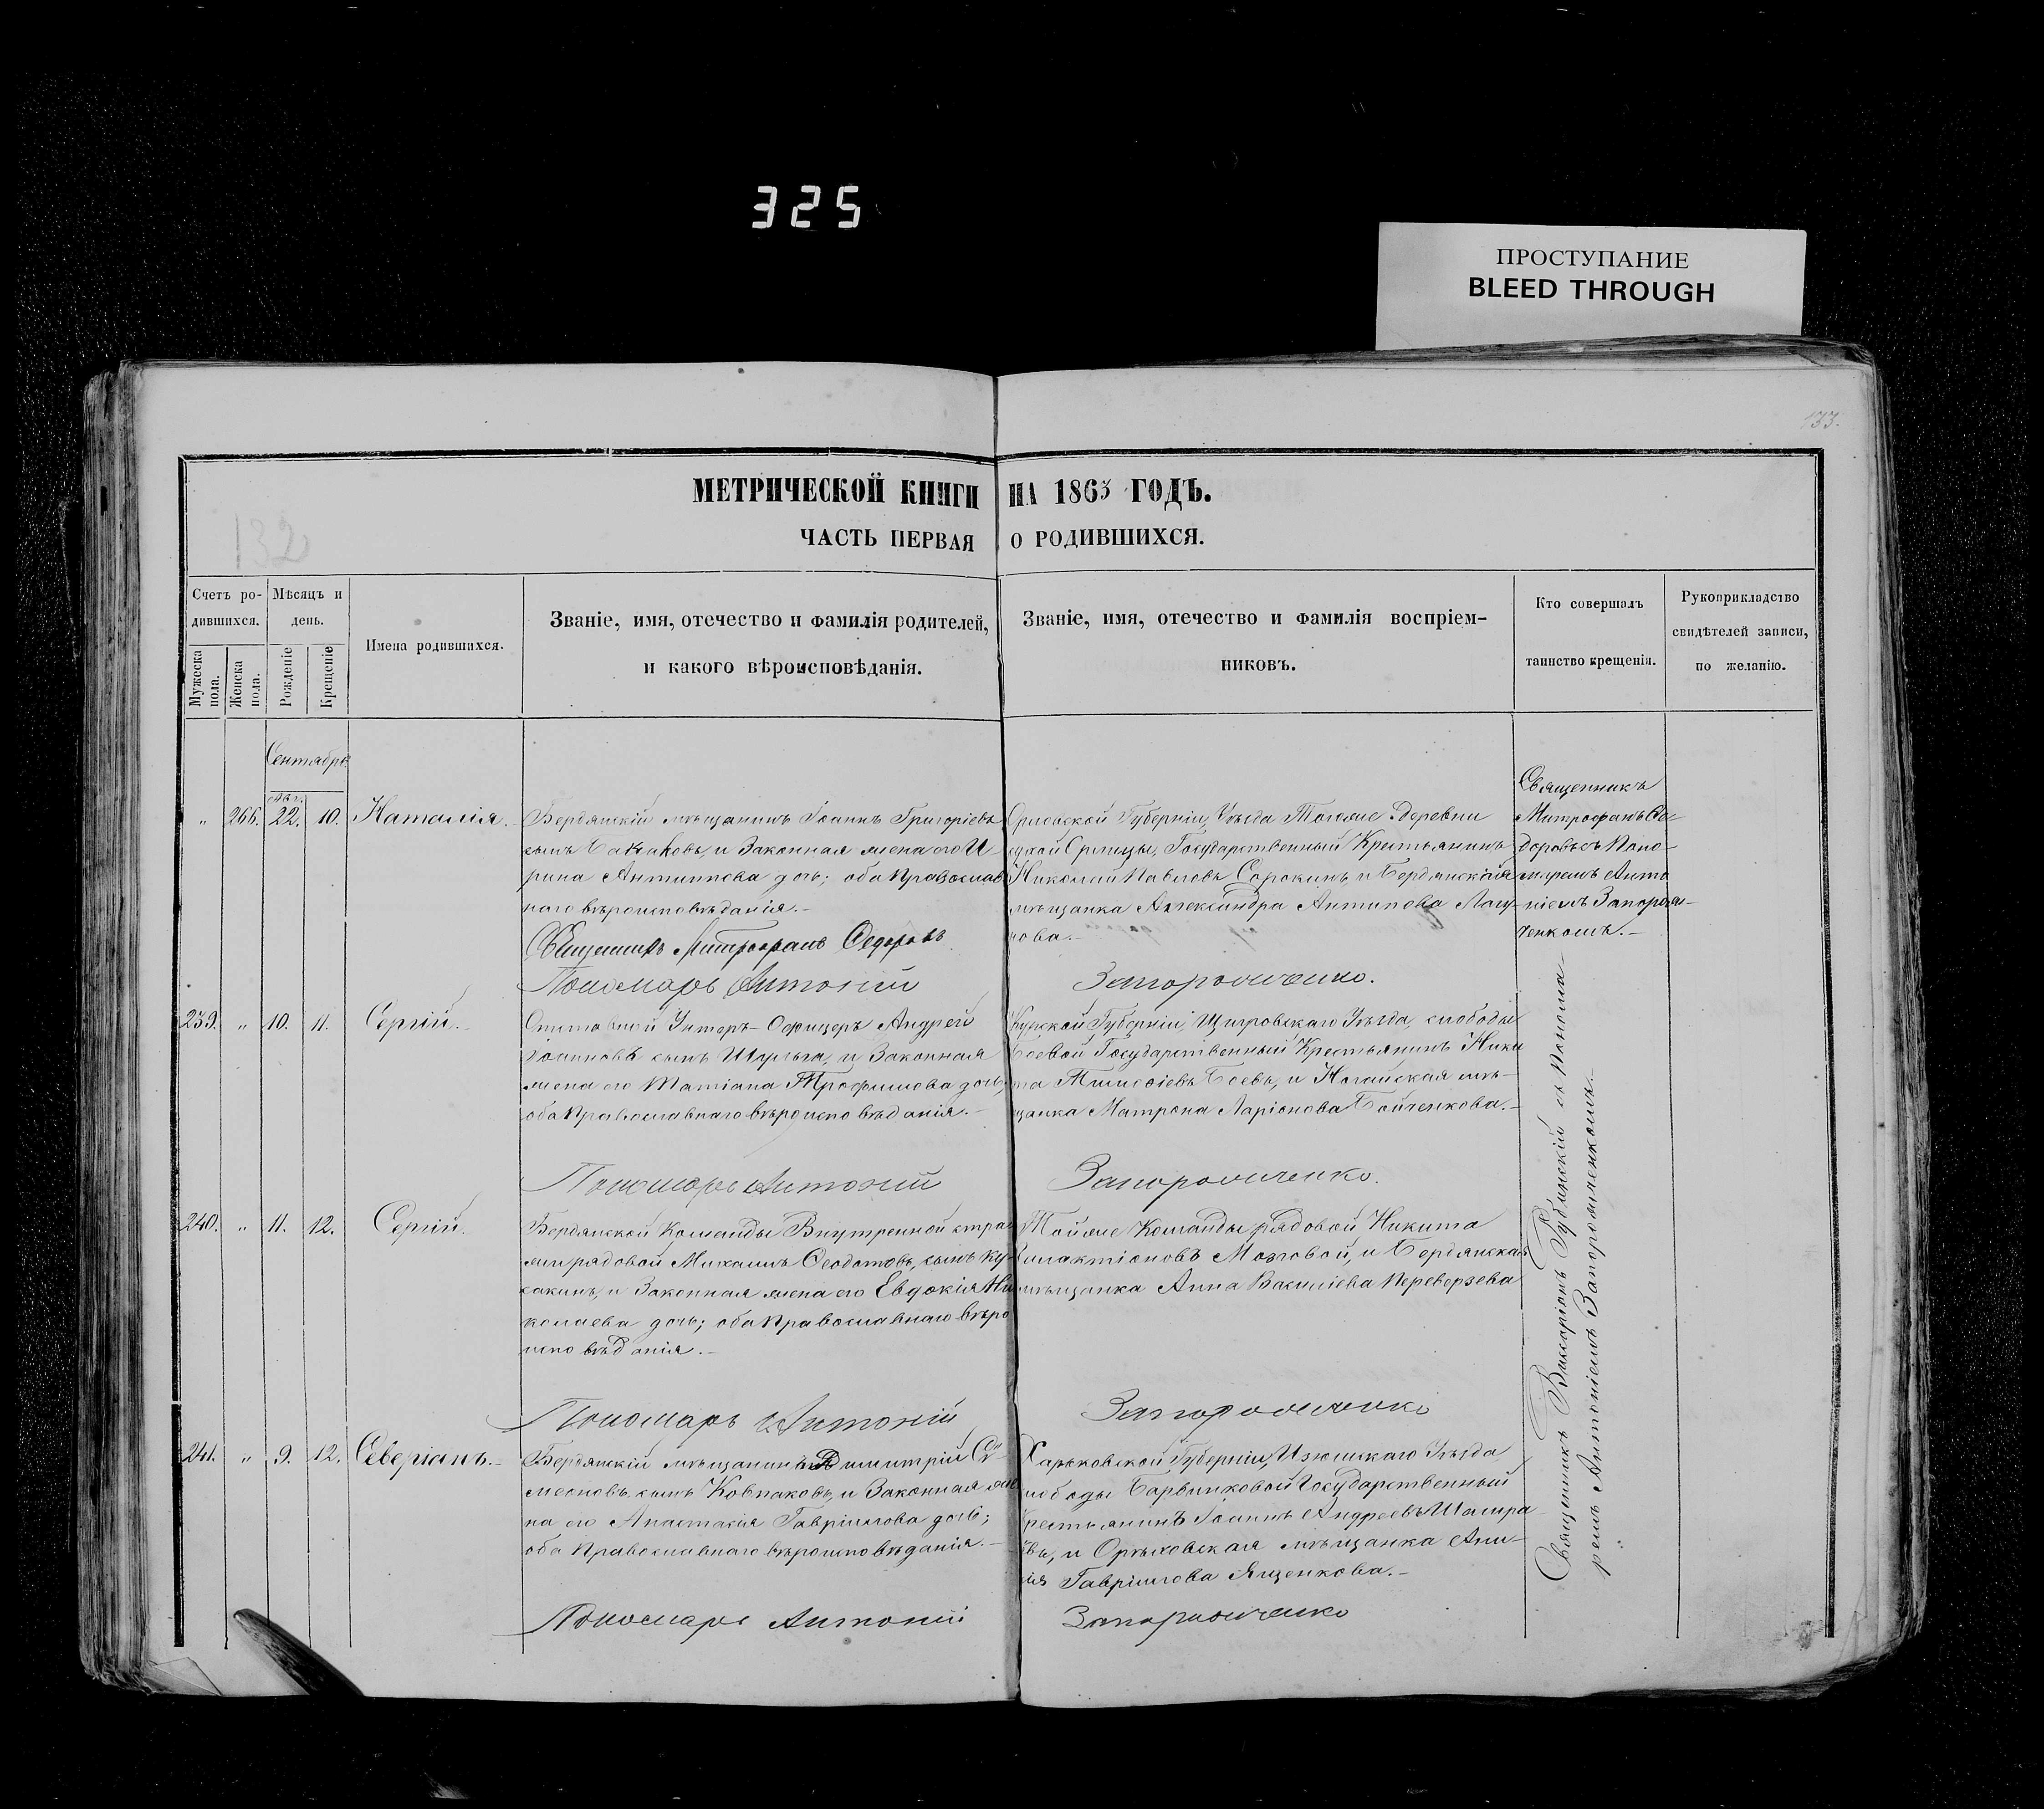 325
ПРОСТУПАНИЕ
BLEED THROUGH
133.
132
МЕТРИЧЕСКОЙ КНИГИ НА 1863 ГОДЪ.
ЧАСТЬ ПЕРВАЯ О РОДИВШИХСЯ.
Счетъ ро-
дившихся.
Мужеска
пола.
Женска
пола.
Мѣсяцъ и
день.
Рожденіе
Крещеніе
Имена родившихся.
Званіе, имя, отечество и фамилія родителей,
и какого вѣроисповѣданія.
Званіе, имя, отечество и фамилія воспріем-
никовъ.
Кто совершалъ
таинство крещенія.
Рукоприкладство
свидѣтелей записи,
по желанію.
Сентябрь
„ 266. 22. 10. Наталія.
Бердянскій мѣщанинъ Іоаннъ Григоріевъ
сынъ и Законная жена его И-
рина Антипова дочь; оба Православ
наго вѣроисповѣданія.-
Священникъ Митрофанъ Федоровъ
Пономарь Антоній Запорожченко.
Орловской Губерніи, Уѣзда Тогоже Деревни
Государственный Крестьянинъ
Николай Павловъ Сорокинъ, и Бердянская
мѣщанка Александра Антипова Лагу-
нова.-
Священникъ
Митрофанъ Фе-
доровъ съ Поно-
маремъ Анто
ніемъ Запорож-
ченкомъ.-
239. „ 10. 11. Сергій.-
Отставной Унтеръ-Офицеръ Андрей
Іоанновъ сынъ и Законная
жена его Татіана Трофимова дочь,
оба Православнаго вѣроисповѣданія.-
Курской Губерніи, Щигровскаго Уѣзда, слободы
Боевой Государственный Крестьянинъ Ники
та Тимофіевъ Боевъ, и Ногайская мѣ-
щанка Матрона Ларіонова Бойченкова.-
Пономарь Антоній Запорожченко.
240. „ 11. 12. Сергій.
Бердянской Команды Внутренной стра
жи рядовой Михаилъ Феодотовъ, сынъ Ку-
сакинъ, и Законная жена его Евдокія Ни
колаева дочь; оба Православнаго вѣро
исповѣданія.-
Тойже Команды рядовой Никита
Галактіоновъ Мозговой, и Бердянская
мѣщанка Анна Василіева Переверзева
Пономарь Антоній Запорожченко
241. „ 9. 12. Северіанъ.-
Бердянскій мѣщанинъ Димитрій Сѵ-
меоновъ сынъ Ковпаковъ, и Законная же
на его Анастасія Гавріилова дочь;
оба Православнаго вѣроисповѣданія.-
Харьковской Губерніи, Изюмскаго Уѣзда,
слободы Барвинковой Государственный
Крестьянинъ Іоаннъ Андреевъ Шамра
евъ, и Орѣховская мѣщанка
Гавріилова Ященкова.-
Пономарь Антоній Запорожченко
Священникъ Виссаріонъ съ Понома-
ремъ Антоніемъ Запорожченкомъ.-